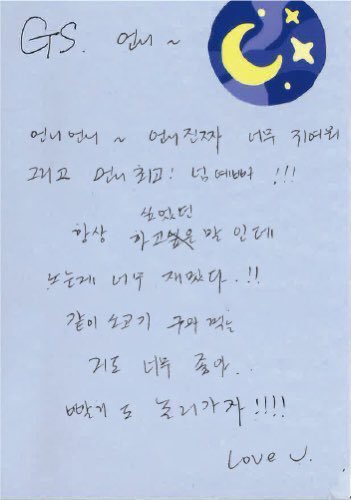 GS. 언니 ~
언니언니 ~ 언니진짜 너무 귀여워
그리고 언니최고! 넘예뻐 !!!
싶었던
항상 하고싶은 말 인데
노는게 너무 재밌다.!!
같이 소고기 구워 먹는
거도 너무 좋아..
빨리 또 놀러가자 !!!!
Love U.